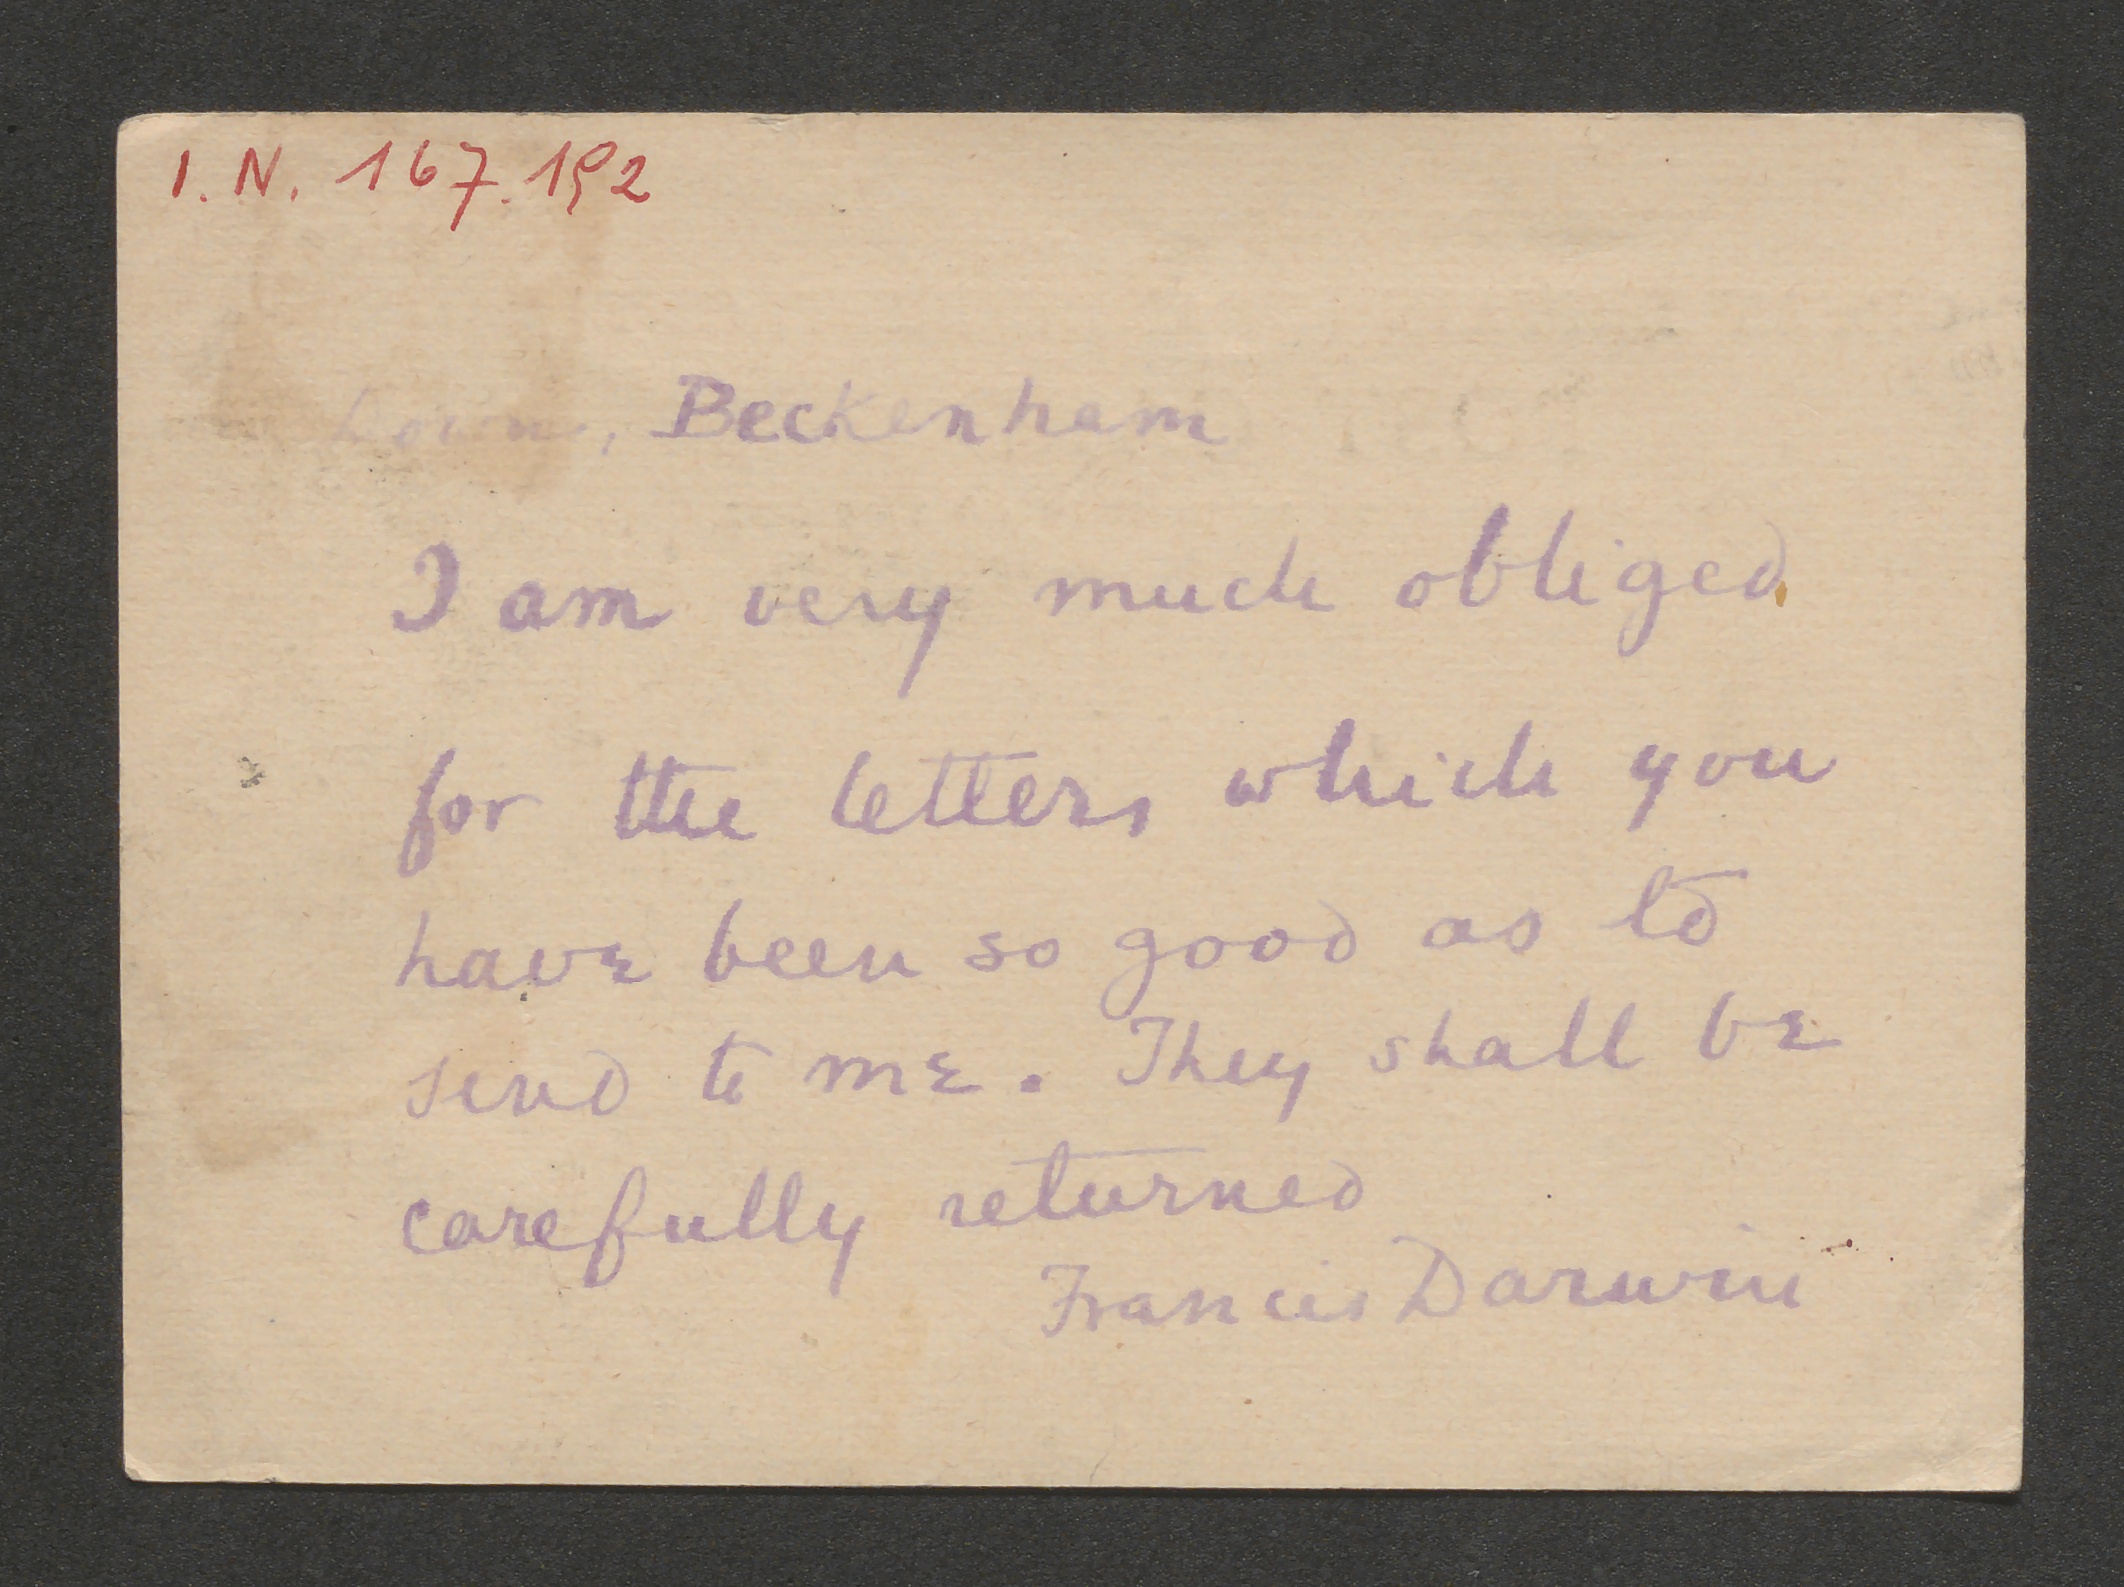 I.N. 167.192
Down, Beckenham
I am very much obliged
for the letters which you
have been so good as to
send to me. They shall be
carefully returned
Francis Darwin